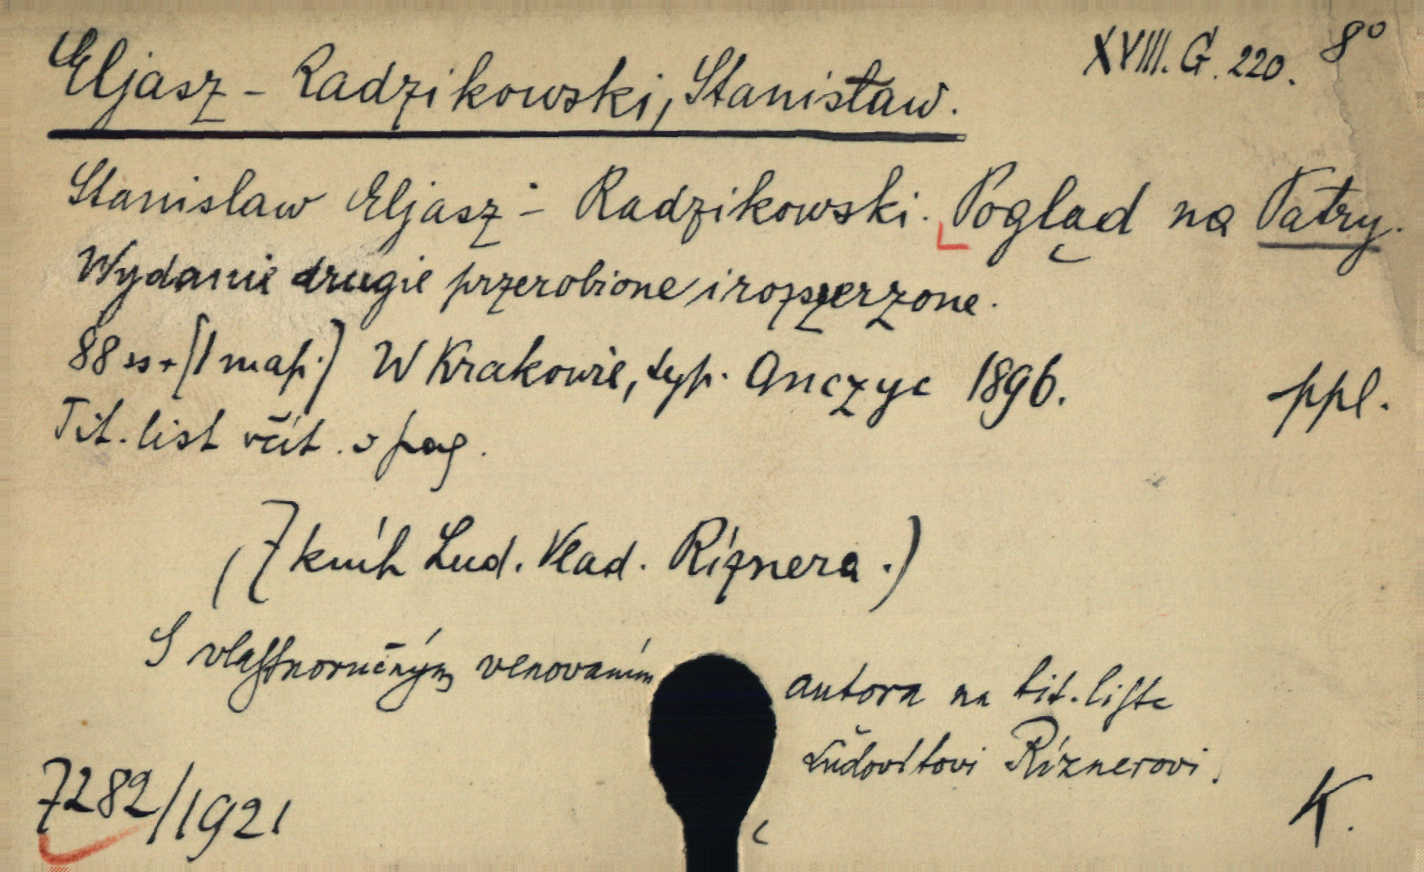 Eljasz-Radzikowski, Stanisław. XVIII. G. 220. 8°
Stanislaw Eljasz-Radzikowski. Pogląd na Tatry.
Wydanie drugie przerobione i rozszerzone.
88 ss + [1 map.] W Krakowie, typ. Anczyc 1896. ppl.
Tit. list včít. v pag.
(Z kníh Lud. Vlad. Ríznera.)
S vlastnoručným venovaním autora na tit. liste
Ľudovítovi Ríznerovi.
7282/1921 K.